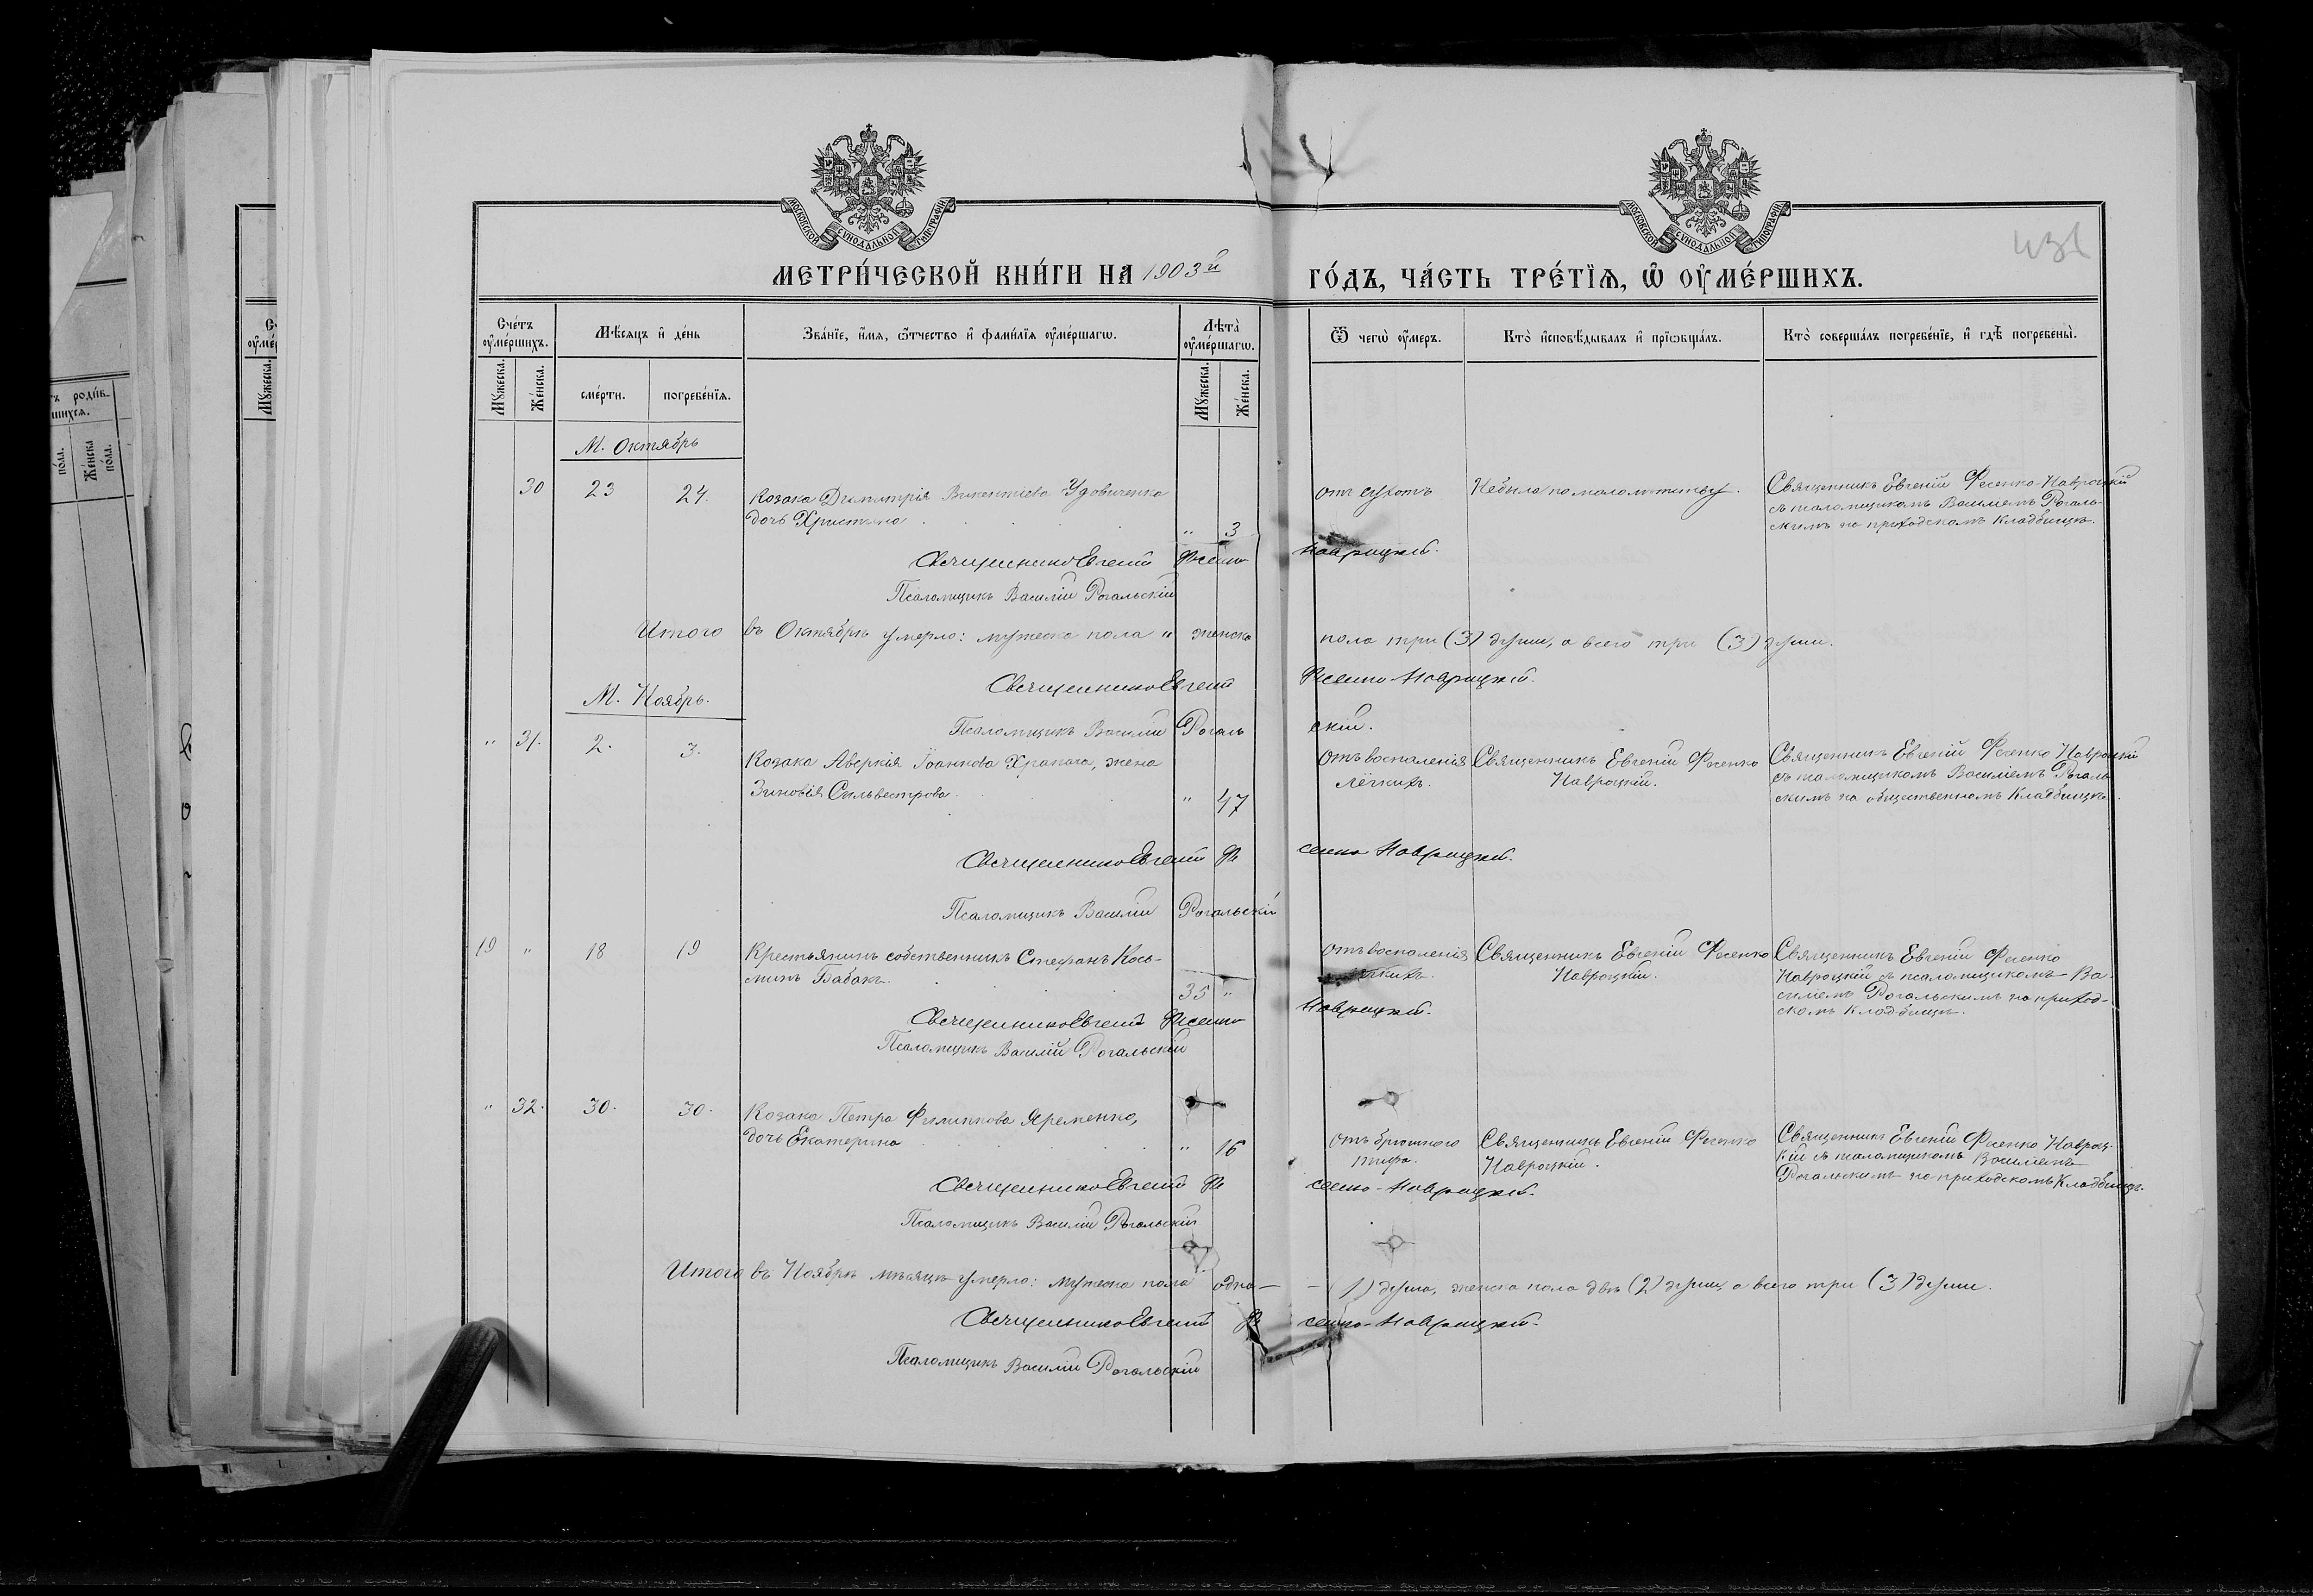 МОСКОВСКОЙ СѴНОДАЛЬНОЙ ТИПОГРАФІИ
МОСКОВСКОЙ СѴНОДАЛЬНОЙ ТИПОГРАФІИ
МЕТРИ́ЧЕСКОЙ КНИ́ГИ НА 1903й ГО́ДЪ, ЧА́СТЬ ТРЕ́ТЇѦ, Ѡ ОУ҆МЕ́РШИХЪ.
Сче́тъ оу҆ме́ршихъ.
Мѣ́сѧцъ и҆ де́нь
Зва́нїе, и҆́мѧ, ѻ҆́тчество и҆ фами́лїѧ оу҆ме́ршагѡ.
Лѣ́та оу҆ме́ршагѡ.
Ѿ чегѡ̀ оу҆́меръ.
Кто̀ и҆сповѣ́дывалъ и҆ прїѡбща́лъ.
Кто̀ соверша́лъ погребе́нїе, и҆ гдѣ̀ погребены̀.
Мꙋ́жеска.
Же́нска.
сме́рти.
погребе́нїѧ.
Мꙋ́жеска.
Же́нска.
М. Октябрь
30 23 24. Козака Димитрія Викентіева Удовиченка
дочь Христина " 3
отъ сухотъ
Небыла по малолѣтству.
Священникъ Евгеній Фесенко-Навроцкій
съ псаломщикомъ Василіемъ Рогаль-
скимъ на приходскомъ кладбищѣ.
Священникъ Евгеній Фесенко Навроцкій.
Псаломщикъ Василій Рогальскій
Итого въ Октябрѣ умерло: мужеска пола " женска пола три (3) души, а всего три (3) души.
Священникъ Евгеній Фесенко-Навроцкій.
М. Ноябрь.
Псаломщикъ Василій Рогальскій.
" 31. 2. 3. Козака Аверкія Іоаннова Храпача, жена
Зиновія Сильвестрова. " 47
Отъ воспаленія
лёгкихъ.
Священникъ Евгеній Фесенко
Навроцкій.
Священникъ Евгеній Фесенко Навроцкій
съ псаломщикомъ Василіемъ Рогаль-
скимъ на общественномъ кладбищѣ.
Священникъ Евгеній Фесенко Навроцкій.
Псаломщикъ Василій Рогальскій
19 " 18 19 Крестьянинъ собственникъ Стефанъ Кось-
минъ Бабакъ. 35 "
Отъ воспаленія
лёгкихъ.
Священникъ Евгеній Фесенко
Навроцкій.
Священникъ Евгеній Фесенко
Навроцкій съ псаломщикомъ Ва-
силіемъ Рогальскимъ на приход-
скомъ кладбищѣ.
Священникъ Евгеній Фесенко Навроцкій.
Псаломщикъ Василій Рогальскій
" 32. 30. 30. Козака Петра Филиппова Яременко,
дочь Екатерина " 16
Отъ брюшного
тифа.
Священникъ Евгеній Фесенко
Навроцкій.
Священникъ Евгеній Фесенко Навроц-
кій съ псаломщикомъ Василіемъ
Рогальскимъ на приходскомъ кладбищѣ.
Священникъ Евгеній Фесенко-Навроцкій.
Псаломщикъ Василій Рогальскій
Итого въ Ноябрѣ мѣсяцѣ умерло: мужеска пола одна — (1) душа, женска пола двѣ (2) души, а всего три (3) души.
Священникъ Евгеній Фесенко-Навроцкій.
Псаломщикъ Василій Рогальскій